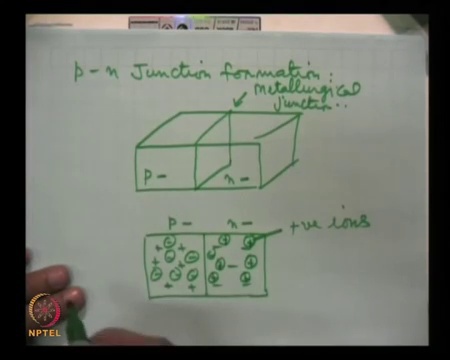 p-n Junction formation:
metallurgical
junction..
p-
n-
p-
n-
+ve ions
NPTEL